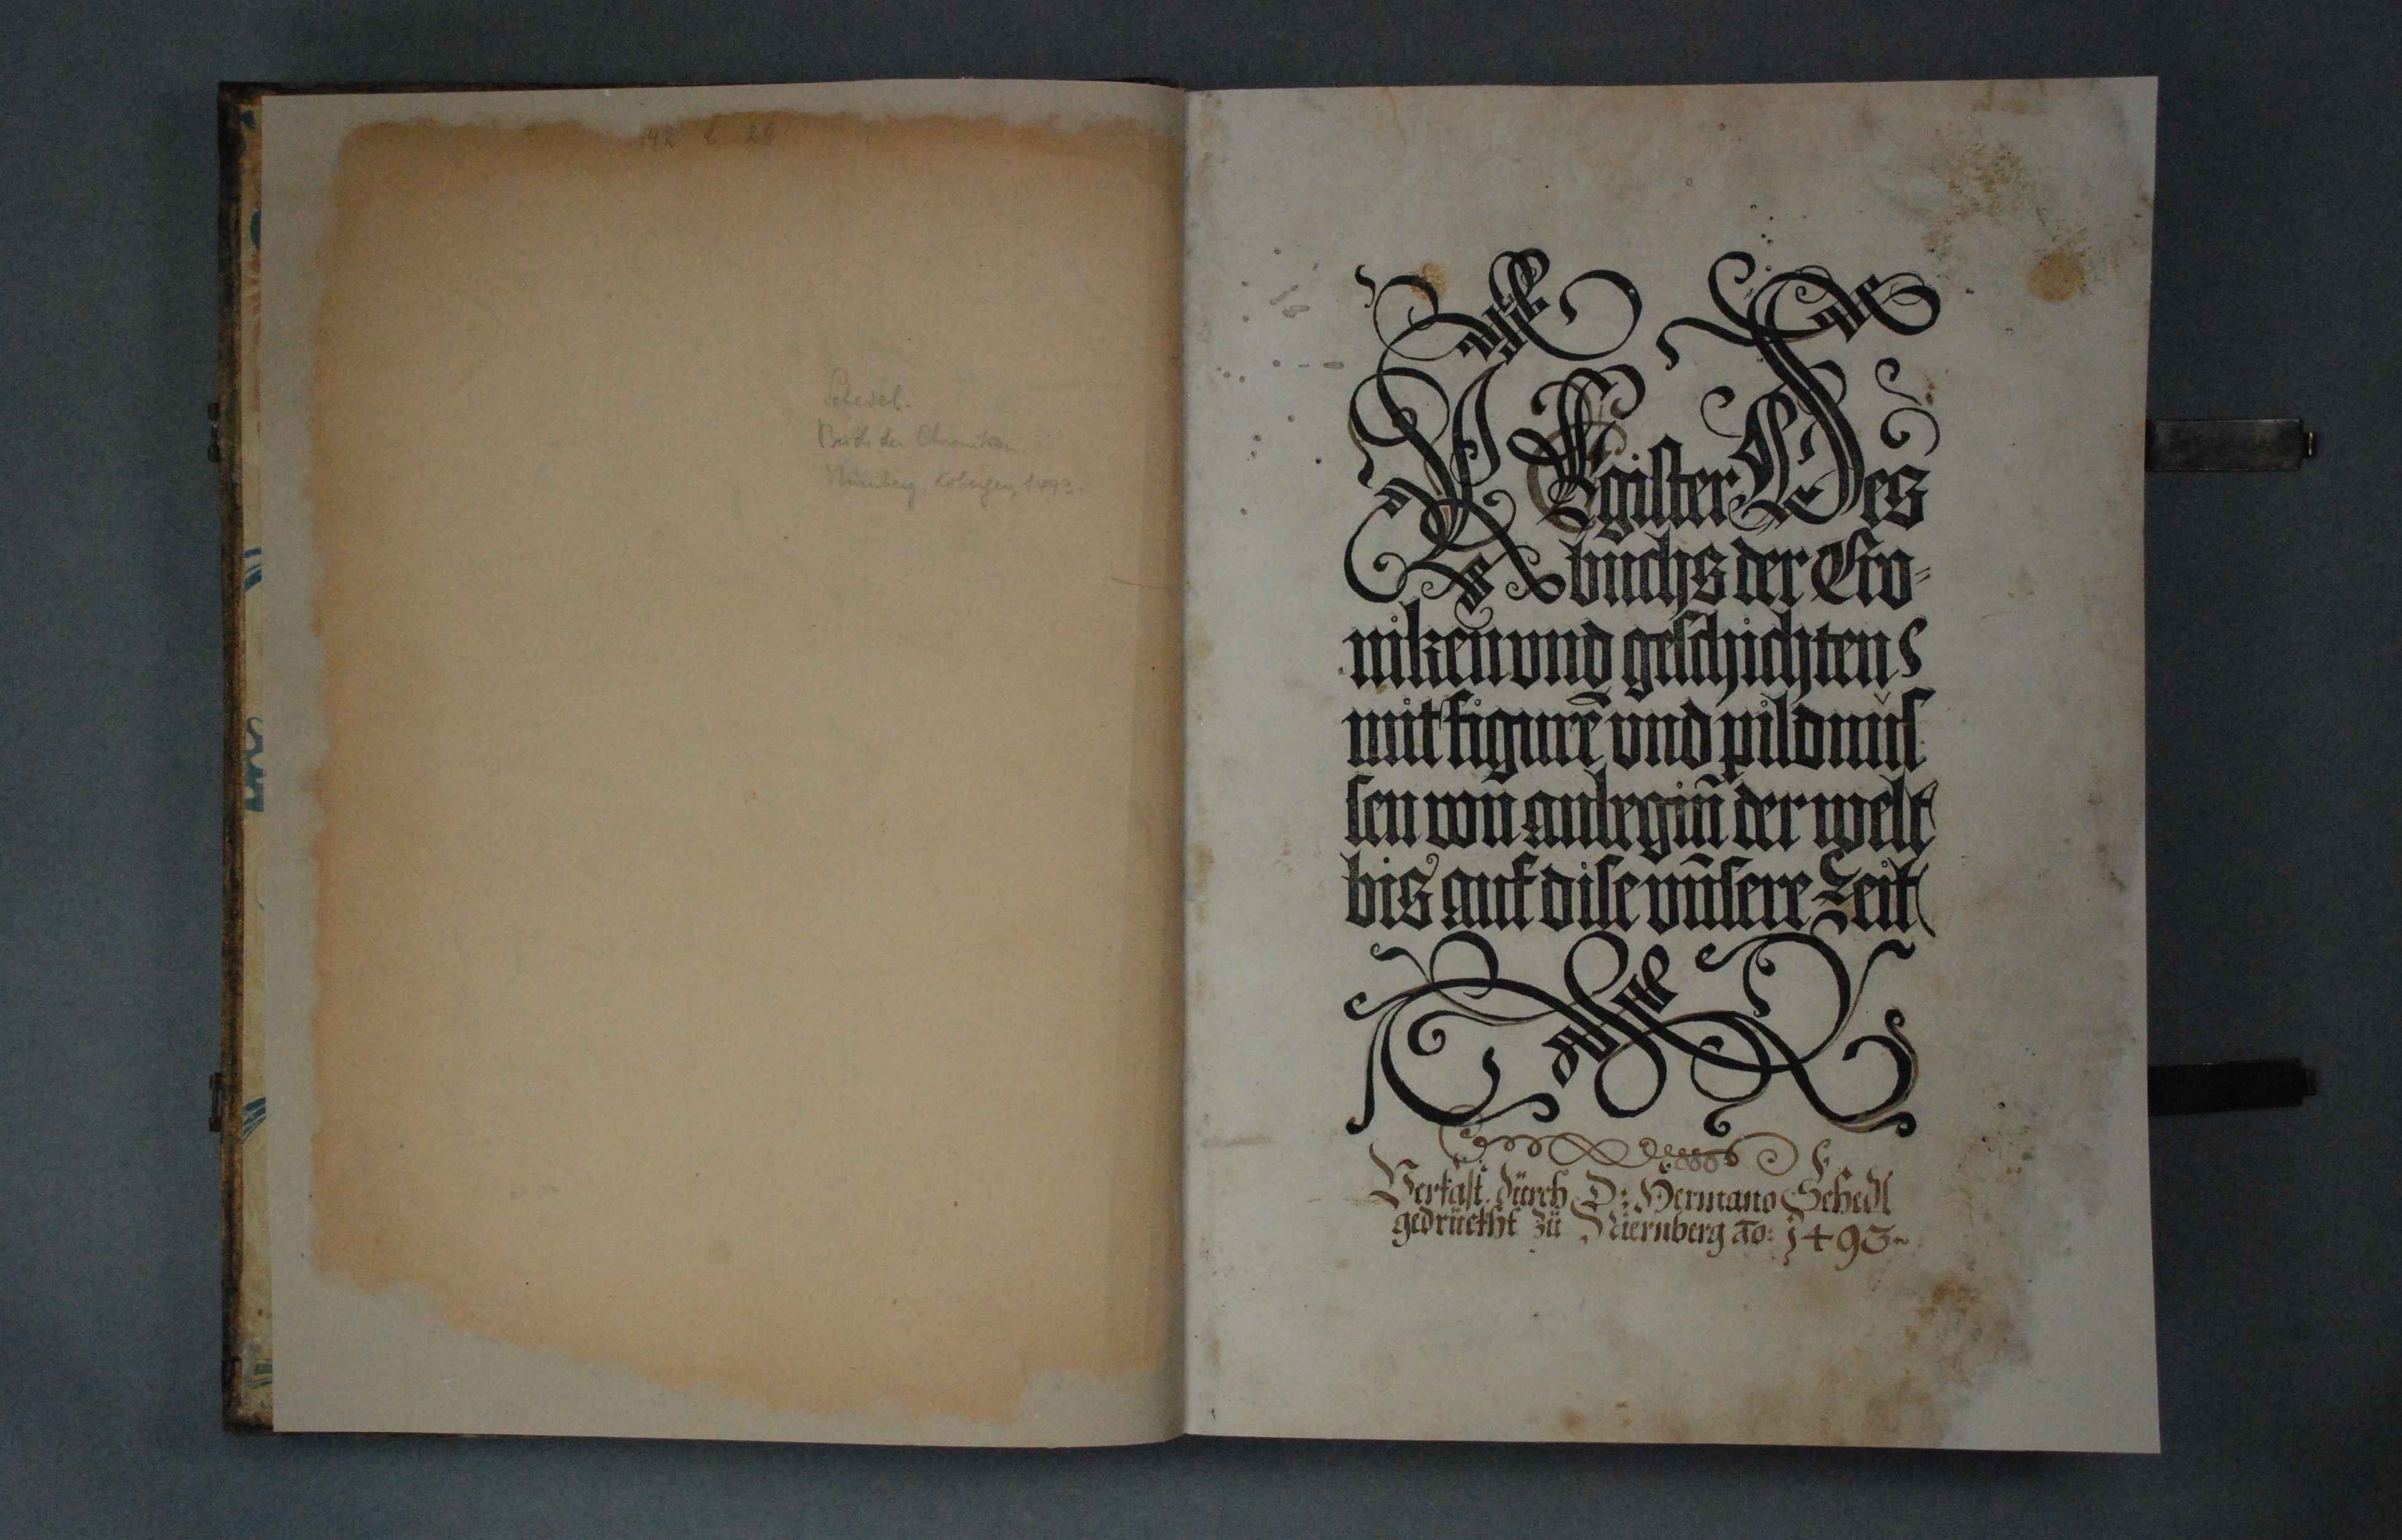 142 b 20
Schedel.
Buch der Chroniken
Nürnberg, Koberger, 1493.
REgister Des
buchs der Cro-
niken vnd geschichten
mit figurē vnd pildnus
sen von anbegiñ der welt
bis auf dise vnsere Zeit
Verfast durch D: Hermano Schedl
gedruckht zü Niernberg ao: 1493